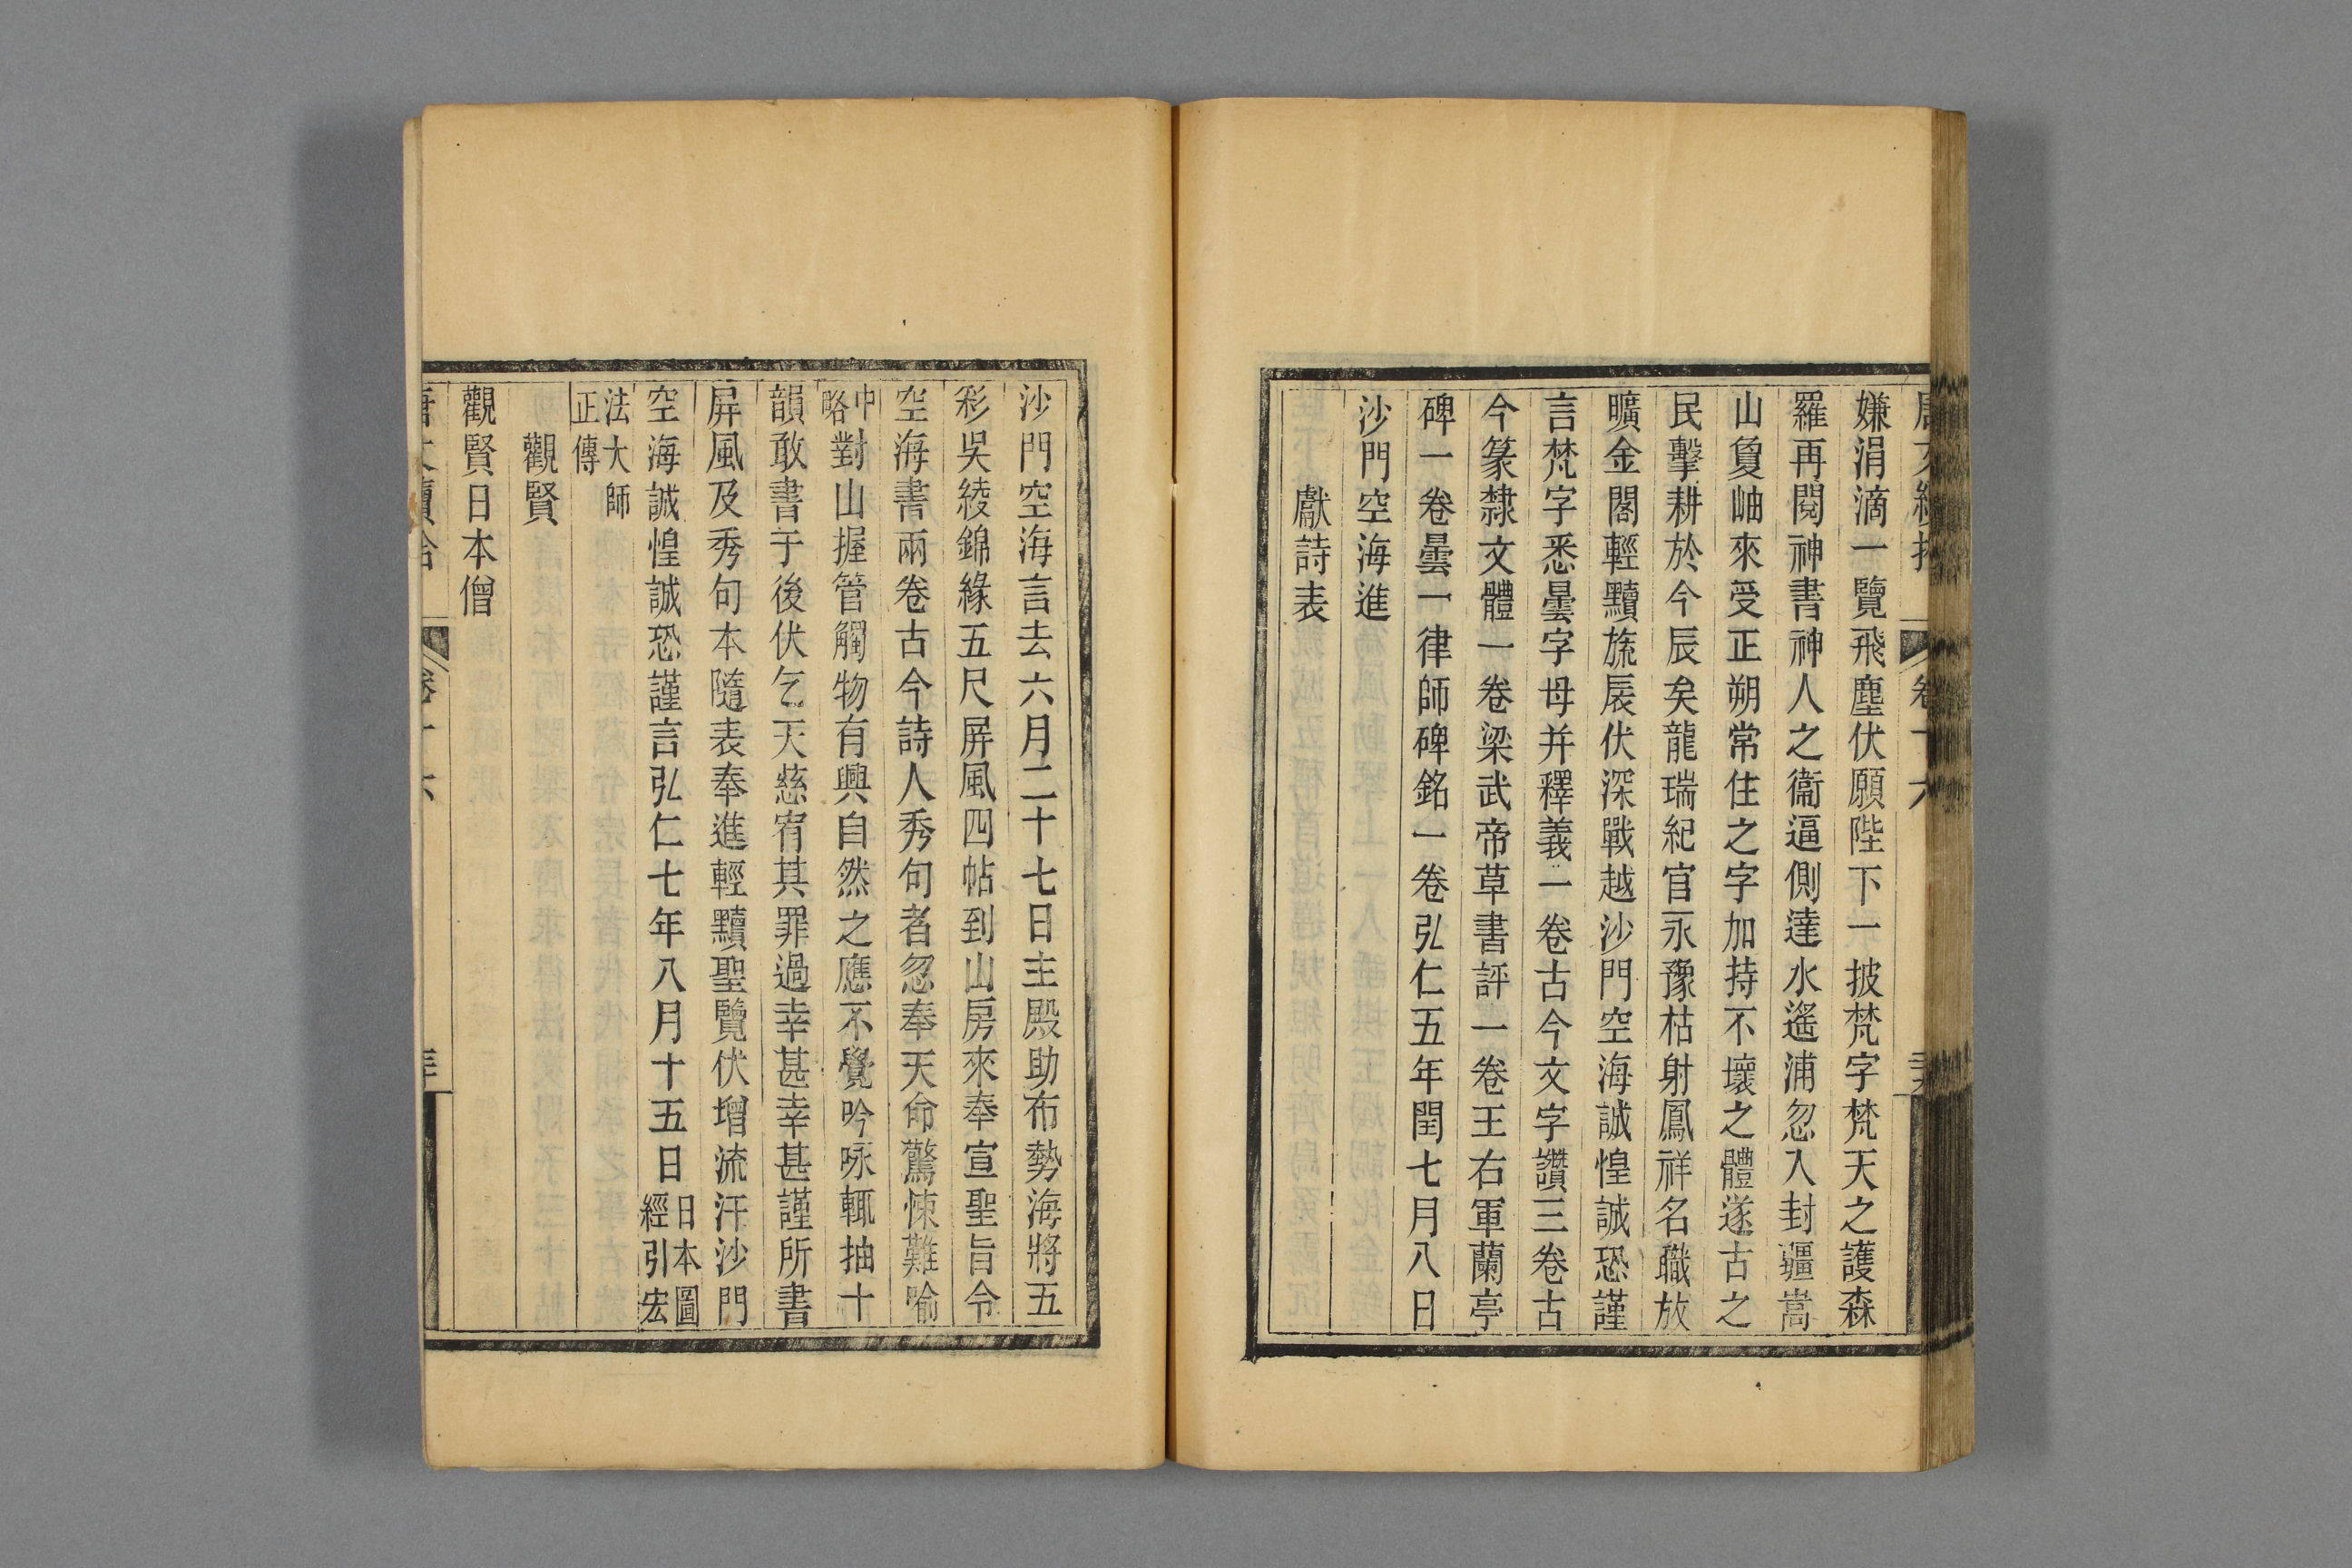 嫌涓滴一覽飛塵伏願陛下一披梵字梵天之護森
羅再閱神書神人之衞逼側達水遙浦忽入封疆嵩
山敻岫來受正朔常住之字加持不壞之體遂古之
民擊耕於今辰矣龍瑞紀官永豫枯射鳳祥名職放
曠金閣輕黷旒扆伏深戰越沙門空海誠惶誠恐謹
言梵字悉曇字母并釋義一卷古今文字讚三卷古
今篆隸文體一卷梁武帝草書評一卷王右軍蘭亭
碑一卷曇一律師碑銘一卷弘仁五年閏七月八日
沙門空海進
獻詩表
沙門空海言去六月二十七日主殿助布勢海將五
彩吳綾錦緣五尺屏風四帖到山房來奉宣聖旨令
空海書兩卷古今詩人秀句者忽奉天命驚悚難喻
中略對山握管觸物有興自然之應不覺吟咏輒抽十
韻敢書于後伏乞天慈宥其罪過幸甚幸甚謹所書
屏風及秀句本隨表奉進輕黷聖覽伏增流汗沙門
空海誠惶誠恐謹言弘仁七年八月十五日日本圖經引宏
法大師正傳
觀賢
觀賢日本僧